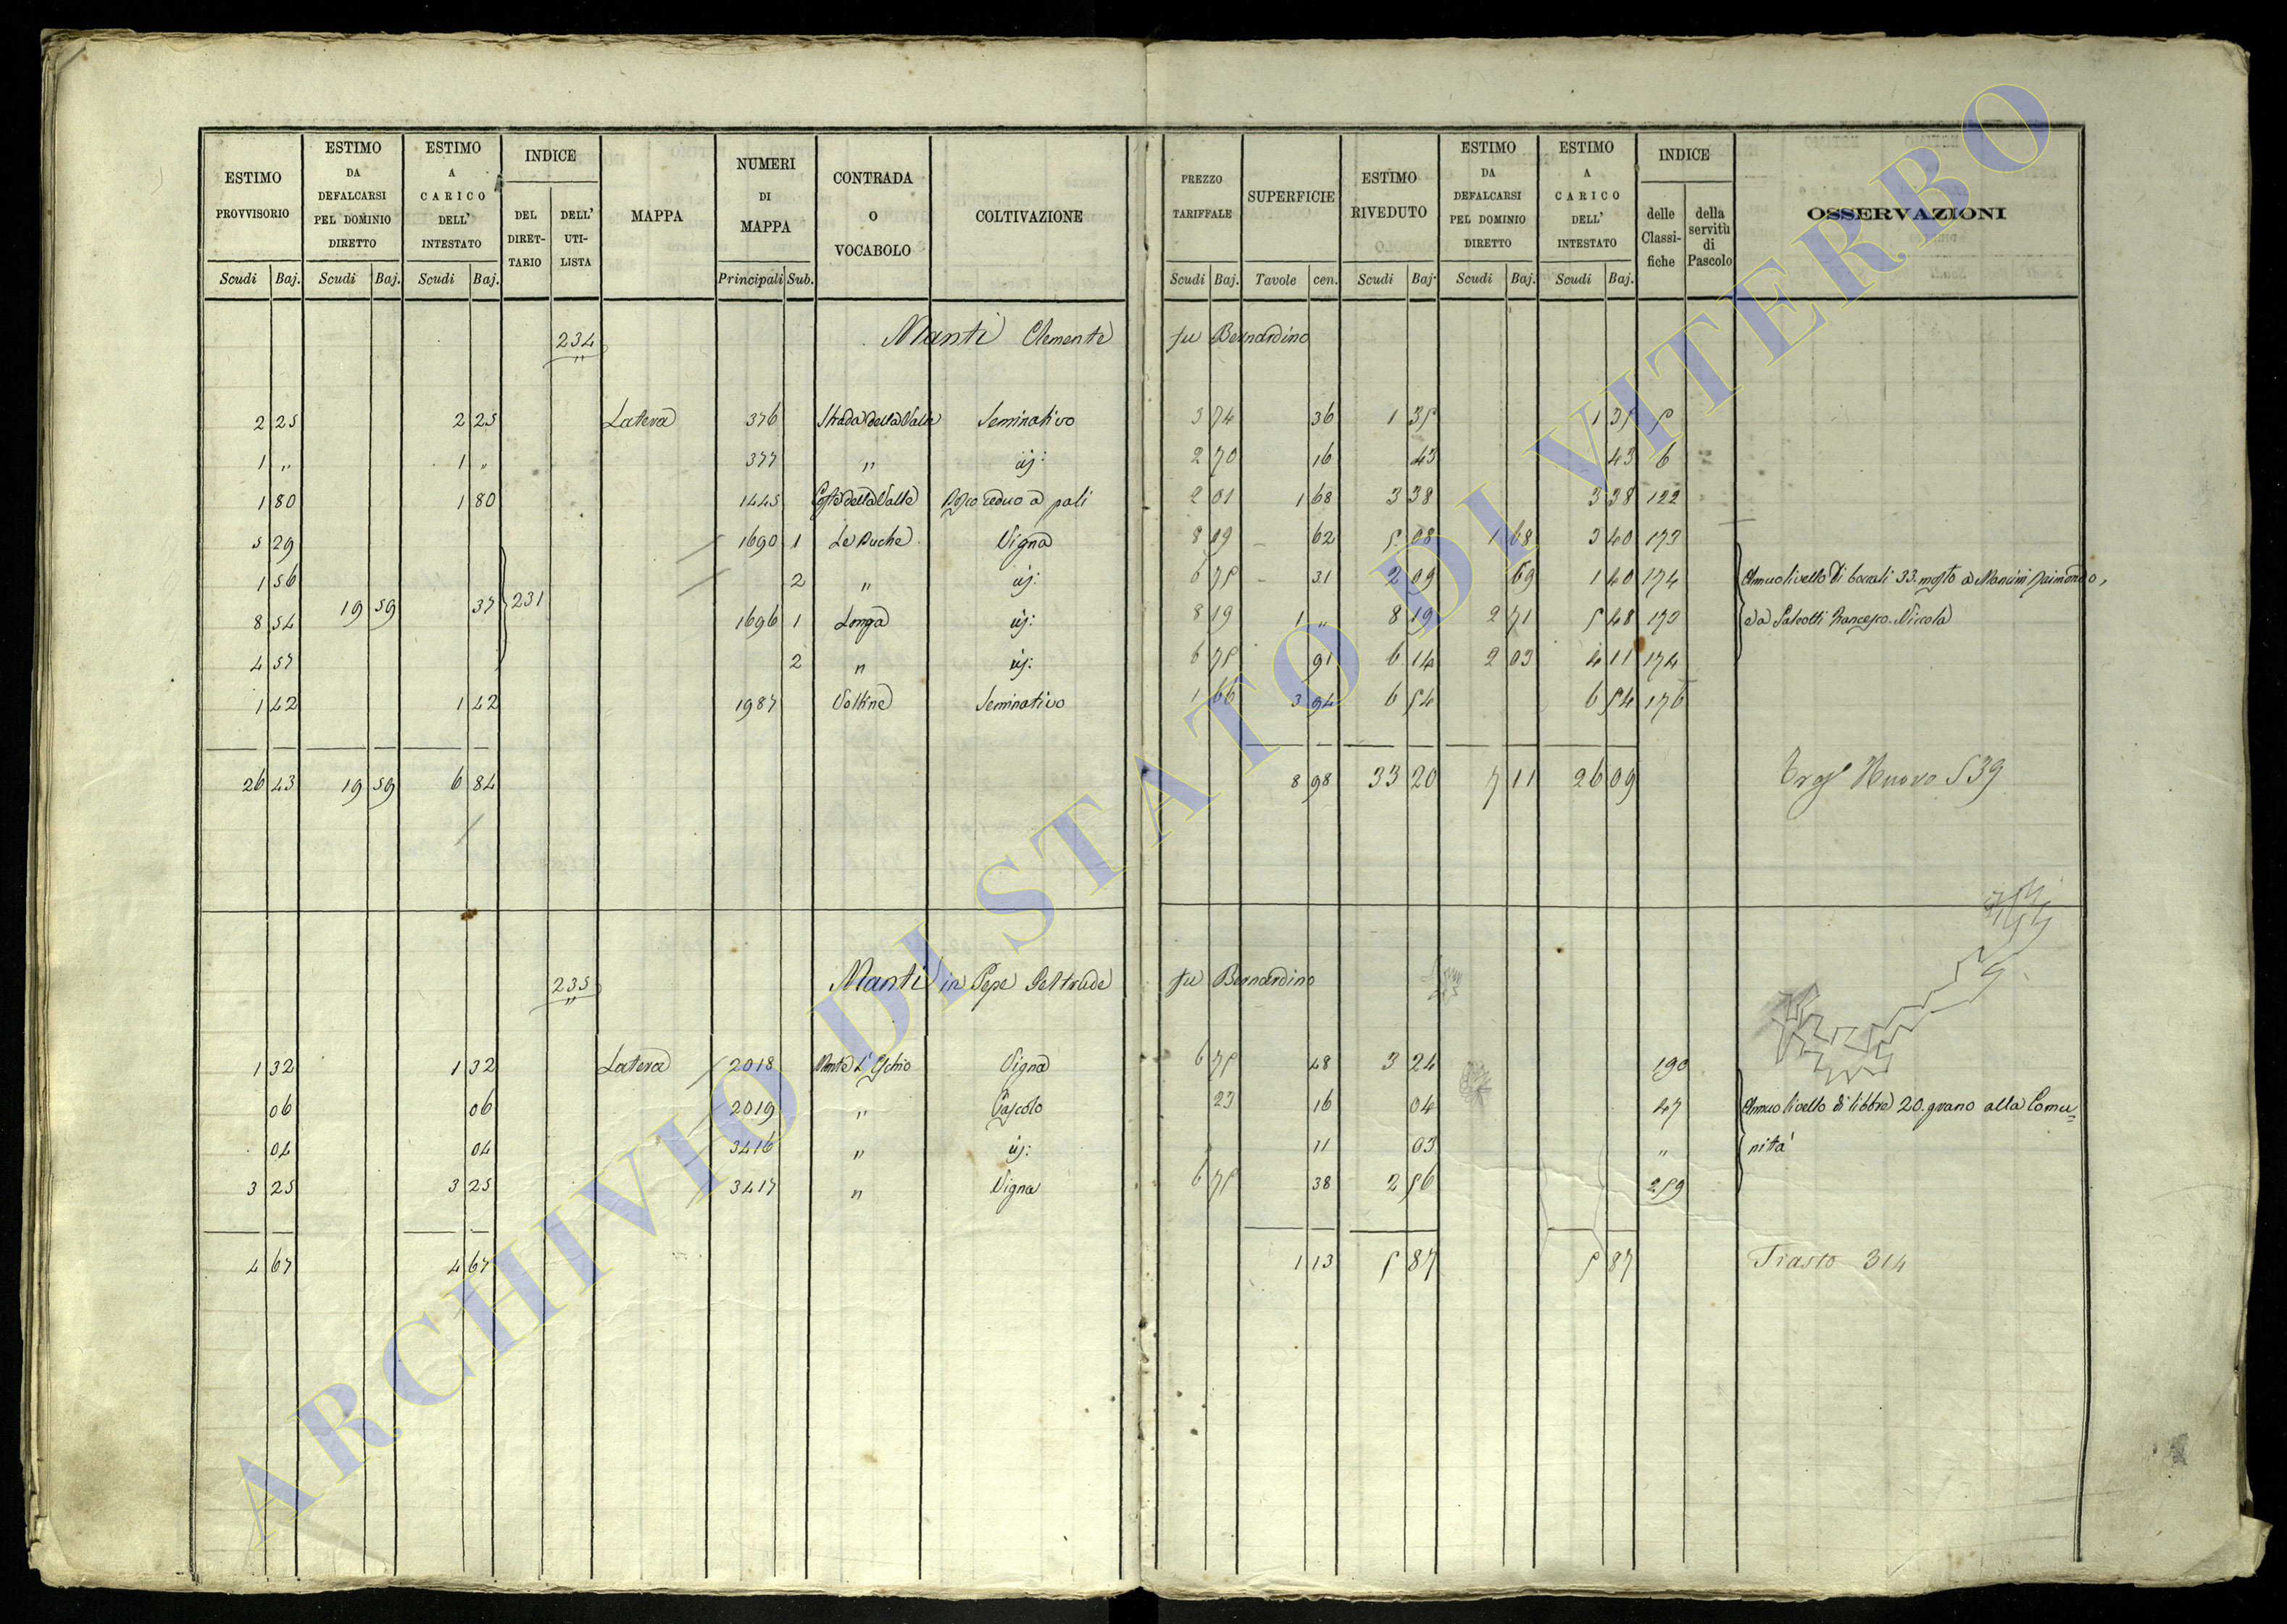 ESTIMO PROVVISORIO | ESTIMO DA DEFALCARSI PEL DOMINIO DIRETTO | ESTIMO A CARICO DELL' INTESTATO | INDICE | MAPPA | NUMERI DI MAPPA | CONTRADA O VOCABOLO | COLTIVAZIONE | PREZZO TARIFFALE | SUPERFICIE | ESTIMO RIVEDUTO | ESTIMO DA DEFALCARSI PEL DOMINIO DIRETTO | ESTIMO A CARICO DELL' INTESTATO | INDICE | OSSERVAZIONI
DEL DIRETTARIO | DELL' UTILISTA | delle Classifiche | della servitù di Pascolo
Scudi Baj. | Scudi Baj. | Scudi Baj. | Principali Sub. | Scudi Baj. | Tavole cen. | Scudi Baj. | Scudi Baj. | Scudi Baj.
234 Manti Clemente fu Bernardino
2 25 | 2 25 | Latera | 376 | Strada della Valle | Seminativo | 3 74 | 36 | 1 35 | 1 35 | 5
1 „ | 1 „ | 377 | „ | id: | 2 70 | 16 | 43 | 43 | 6
1 80 | 1 80 | 1445 | Coste della Valle | Bosco ceduo a pali | 2 01 | 1 68 | 3 38 | 3 38 | 122
5 29 | 1690 1 | Le Buche | Vigna | 8 19 | 62 | 5 08 | 1 68 | 3 40 | 173
1 56 | 2 | „ | id: | 6 75 | 31 | 2 09 | 69 | 1 40 | 174 | Annuo livello di boccali 33. mosto a Mancini Raimondo,
19 59 | 37 | 231
8 54 | 1696 1 | Longa | id: | 8 19 | 1 „ | 8 19 | 2 71 | 5 48 | 173 | Francesco. Niccola
4 57 | 2 | „ | id: | 6 75 | 91 | 6 14 | 2 03 | 4 11 | 174
1 42 | 1 42 | 1987 | Valline | Seminativo | 1 66 | 3 94 | 6 54 | 6 54 | 176
26 43 | 19 59 | 6 84 | 8 98 | 33 20 | 7 11 | 26 09 | Nuovo 539
235 Manti in Pepe Geltrude fu Bernardino
1 32 | 1 32 | Latera | 2018 | Monte l'Eschio | Vigna | 6 75 | 48 | 3 24 | 190
06 | 06 | 2019 | „ | Pascolo | 23 | 16 | 04 | 47 | Annuo livello di libbre 20. grano alla Comu=
04 | 04 | 3416 | „ | id: | „ | 11 | 03 | „ | nità
3 25 | 3 25 | 3417 | „ | Vigna | 6 75 | 38 | 2 56 | 259
4 67 | 4 67 | 1 13 | 5 87 | 5 87 | 314
ARCHIVIO DI STATO DI VITERBO